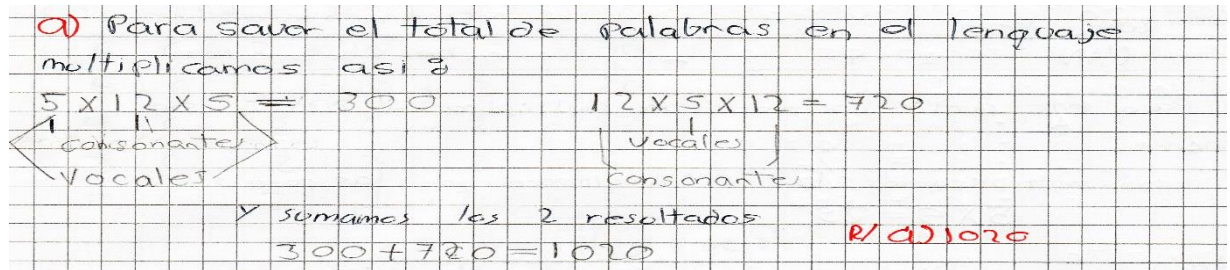 a) Para saver el total de palabras en el lenguaje
multiplicamos asi:
5 x 12 x 5 = 300 12 x 5 x 12 = 720
consonantes vocales
Vocales consonantes
Y sumamos los 2 resultados
300 + 720 = 1020 R/ a) 1020